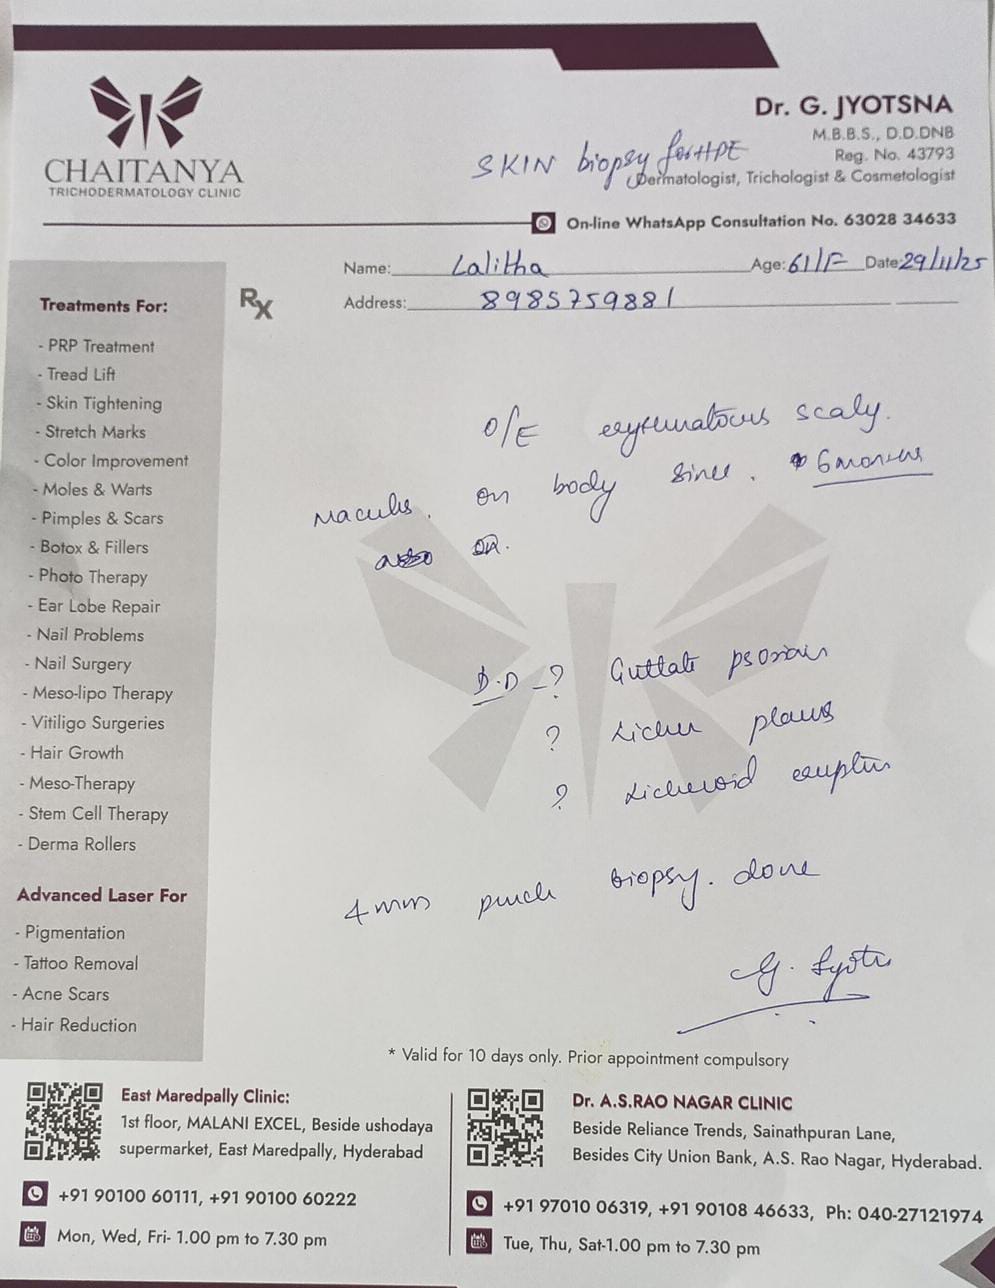 CHAITANYA
TRICHODERMATOLOGY CLINIC
Dr. G. JYOTSNA
M.B.B.S., D.D.DNB
Reg. No. 43793
Dermatologist, Trichologist & Cosmetologist
SKIN biopsy for HPE
On-line WhatsApp Consultation No. 63028 34633
Name: Lalitha Age: 61/F Date: 29/11/25
Address: 8985759881
Rx
Treatments For:
- PRP Treatment
- Tread Lift
- Skin Tightening
- Stretch Marks
- Color Improvement
- Moles & Warts
- Pimples & Scars
- Botox & Fillers
- Photo Therapy
- Ear Lobe Repair
- Nail Problems
- Nail Surgery
- Meso-lipo Therapy
- Vitiligo Surgeries
- Hair Growth
- Meso-Therapy
- Stem Cell Therapy
- Derma Rollers
Advanced Laser For
- Pigmentation
- Tattoo Removal
- Acne Scars
- Hair Reduction
O/E erythematous scaly.
macules. on body since. 6 months
D.D - ? Guttate psoriasis
? Lichen planus
? Lichenoid eruption
4 mm punch biopsy. done
G. Jyots
* Valid for 10 days only. Prior appointment compulsory
East Maredpally Clinic:
1st floor, MALANI EXCEL, Beside ushodaya
supermarket, East Maredpally, Hyderabad
+91 90100 60111, +91 90100 60222
Mon, Wed, Fri- 1.00 pm to 7.30 pm
Dr. A.S.RAO NAGAR CLINIC
Beside Reliance Trends, Sainathpuran Lane,
Besides City Union Bank, A.S. Rao Nagar, Hyderabad.
+91 97010 06319, +91 90108 46633, Ph: 040-27121974
Tue, Thu, Sat-1.00 pm to 7.30 pm